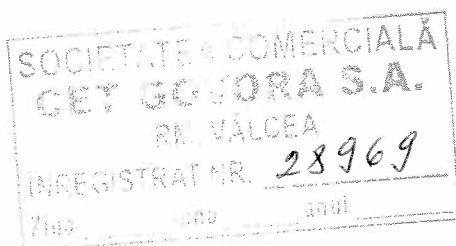 SOCIETATE COMERCIALĂ
CET GOVORA S.A.
RM. VÂLCEA
INREGISTRAT NR. 28969
Ziua luna anul